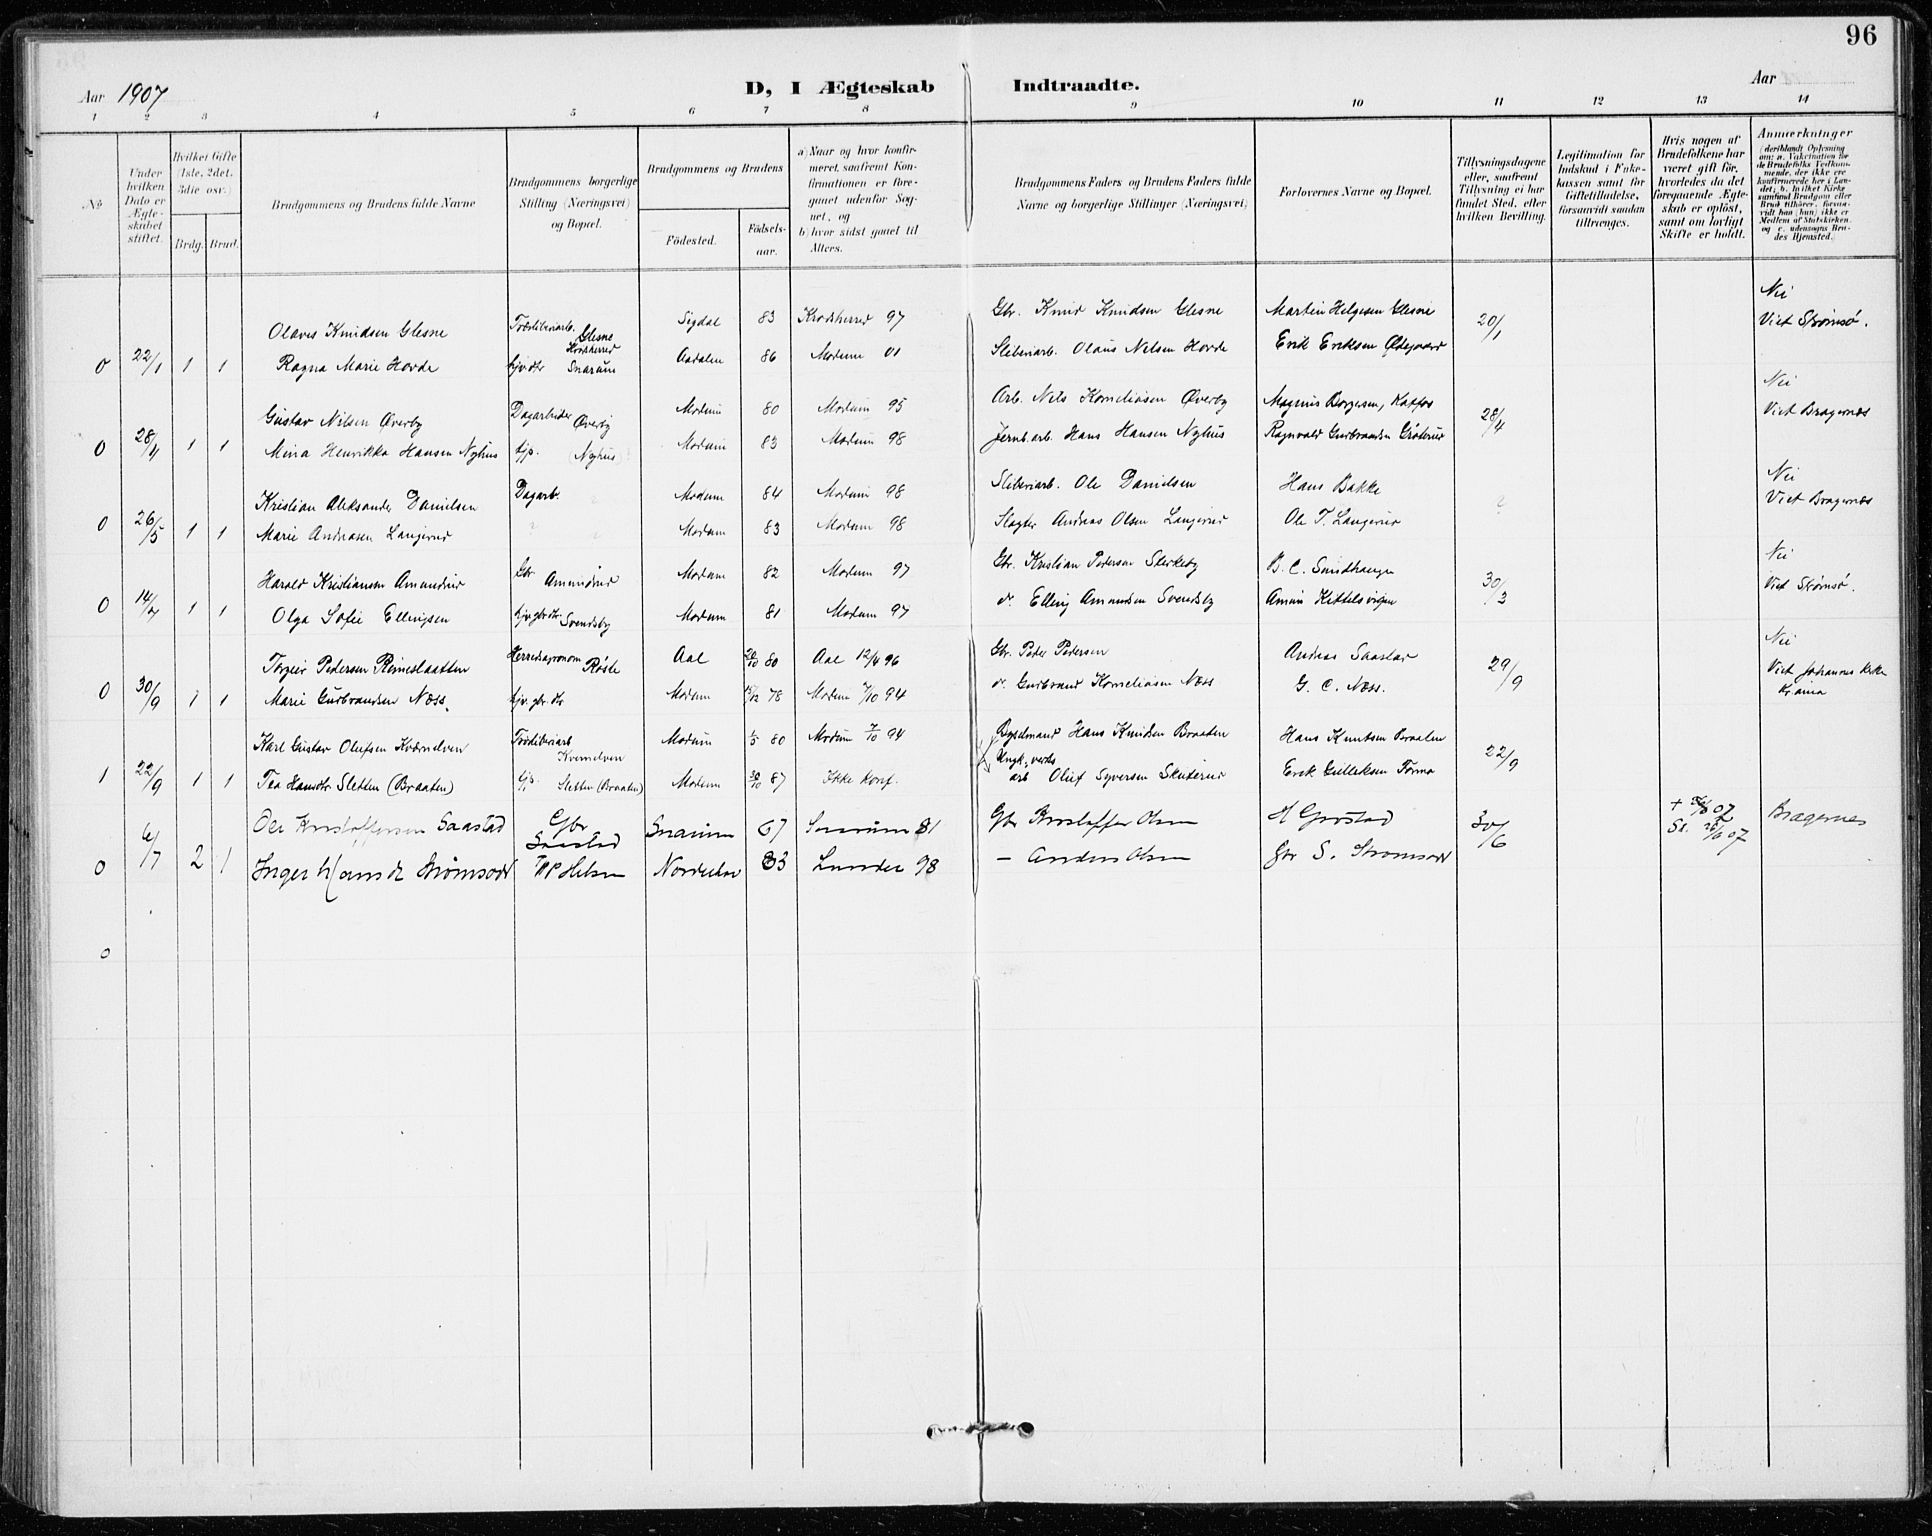 96
Aar 1907
D, I Ægteskab Indtraadte.
Aar
1 2 3 4 5 6 7 8 9 10 11 12 13 14
No.
Under hvilken Dato er Ægteskabet stiftet.
Hvilket Gifte (1ste, 2det, 3die osv.)
Brdg. Brud.
Brudgommens og Brudens fulde Navne
Brudgommens borgerlige Stilling (Næringsvei) og Bopæl.
Brudgommens og Brudens
Födested.
Födselsaar.
a) Naar og hvor konfirmeret, saafremt Konfirmationen er foregaaet udenfor Sognet, og
b) hvor sidst gaaet til Alters.
Brudgommens Faders og Brudens Faders fulde Navne og borgerlige Stillinger (Næringsvei)
Forlovernes Navne og Bopæl.
Tillysningsdagene eller, saafremt Tillysning ei har fundet Sted, efter hvilken Bevilling.
Legitimation for Indskud i Enkekassen samt for Giftetilladelse, forsaavidt saadan tiltrænges.
Hvis nogen af Brudefolkene har været gift för, hvorledes da det foregaaende Ægteskab er oplöst, samt om lovligt Skifte er holdt.
Anmærkninger (deriblandt Oplysning om: a. Vakcination for de Brudefolks Vedkommende, der ikke ere konfirmerede her i Landet; b. hvilket Kirkesamfund Brudgom eller Brud tilhörer, forsaavidt han (hun) ikke er Medlem af Statskirken, og c. udensogns Brudes Hjemsted.)
Olaves Knudsen Glesne Træsliberiarb. Glesne Krødsherred Sigdal 83 Krødsherred 97 Gbr. Knud Knudsen Glesne Martin Helgesen Glesne 20/1 Nei Viet Strømsø.
0 22/1 1 1 Ragna Marie Hovde hjv. dtr Snarum Aadalen 86 Modum 01 Sliberiarb. Olaus Nilsen Hovde Erik Eriksen Ødegaard
Gustav Nilsen Øverby Dagarbeider Øverby Modum 80 Modum 95 Arb. Nils Korneliasen Øverby Magnus Borgersen, Katfos 28/4 Nei Viet Bragernæs
0 28/4 1 1 Mina Henrikka Hansen Nyhus tjp. (Nyhus) Modum 83 Modum 98 Jernb. arb. Hans Hansen Nyhus Ragnvald Gudbrandsen Grøterud
Kristian Aleksander Danielsen Dagarb. Modum 84 Modum 98 Sliberiarb. Ole Danielsen Hans Bakke ? Nei Viet Bragernæs
0 26/5 1 1 Marie Andreasen Langerud Modum 83 Modum 98 Slagter Andreas Olsen Langerud Ole T. Langerud
Harald Kristiansen Amundrud Gbr Amundrud Modum 82 Modum 97 Gbr. Kristian Pedersen Sterkeby B. C. Sundhaugen 30/3 Nei Viet Strømsø.
0 14/4 1 1 Olga Sofie Ellingsen hjv. gbr. dtr. Svendsby Modum 81 Modum 97 d. Elling Amundsen Svendsby
Torgeir Pedersen Reineslaatten Herredsagronom Røste Aal 20/10 80 Aal 12/4 96 Gbr. Peder Pedersen Andreas Saastad 29/9 Nei Viet Johannes Kirke Kr.ania
0 30/9 1 1 Marie Gudbrandsen Næss. hjv. gbr. dtr Modum 15/12 78 Modum 7/10 94 d. Gudbrand Korneliasen Næss G. C. Næss.
Karl Gustav Olufsen Kvernelven Træsliberiarb Kvernelven Modum 1/5 80 Modum 7/10 94 Bygselmand Hans Knudsen Braaten Hans Knutsen Braaten 22/9
1 22/9 1 1 Tea Hansdtr Sletten (Braaten) tjp. Sletten (Braaten) Modum 30/10 87 Ikke konf. arb Oluf Syversen Skuterud Erik Gulliksen Formo
Ole Kristoffersen Saastad Gbr Saastad Snarum 67 Snarum 81 Gbr Kristoffer Olsen H Grøstad 30/6 07 07 Bragernes
0 6/7 2 1 Inger Hansdt Strømsodd Norderhov 83 Lunder 98 – Anders Olsen Gbr S. Strømsodd
0